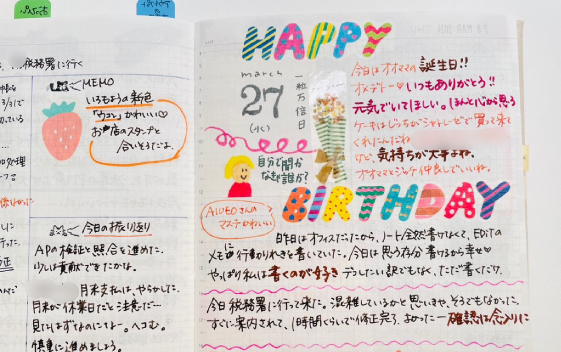 …税務署に行く
MEMO
いろもようの新色
「ウコン」かわいい♡
お店のスタンプと
合いそうだよ。
今日の振り返り
APの検証と照合を進めた。
少しは貢献できたかな。
月末支払は、やらかした。
月末が休業日だと注意だ…
見たはずなのになー。へコむ。
慎重に進めましょう。
HAPPY
march
27
(水)
一粒万倍日
今日はオオママの誕生日!!
オメデトー♡いつもありがとう!!
元気でいてほしい。ほんと心から思う
ケーキはじっちがシャトレーゼで買って来て
くれたんだね
けど、気持ちが大事よね。
オオママとジャケ仲良しでいいね。
自分で聞か
なきゃ誰が?
BIRTHDAY
AIUEOさんの
マステかわいい
昨日はオフィスだったから、ノート全然書けなくて、EDiTの
メモに行動わりれきを書いていた。今日は思う存分書けるから幸せ♡
やっぱり私は書くのが好き どうしたい訳でもなく、ただ書くだけ。
今日税務署に行って来た。混雑しているかと思いきや、そうでもなかった。
すぐに案内されて、1時間くらいで修正完了。よかったー確認は念入りに